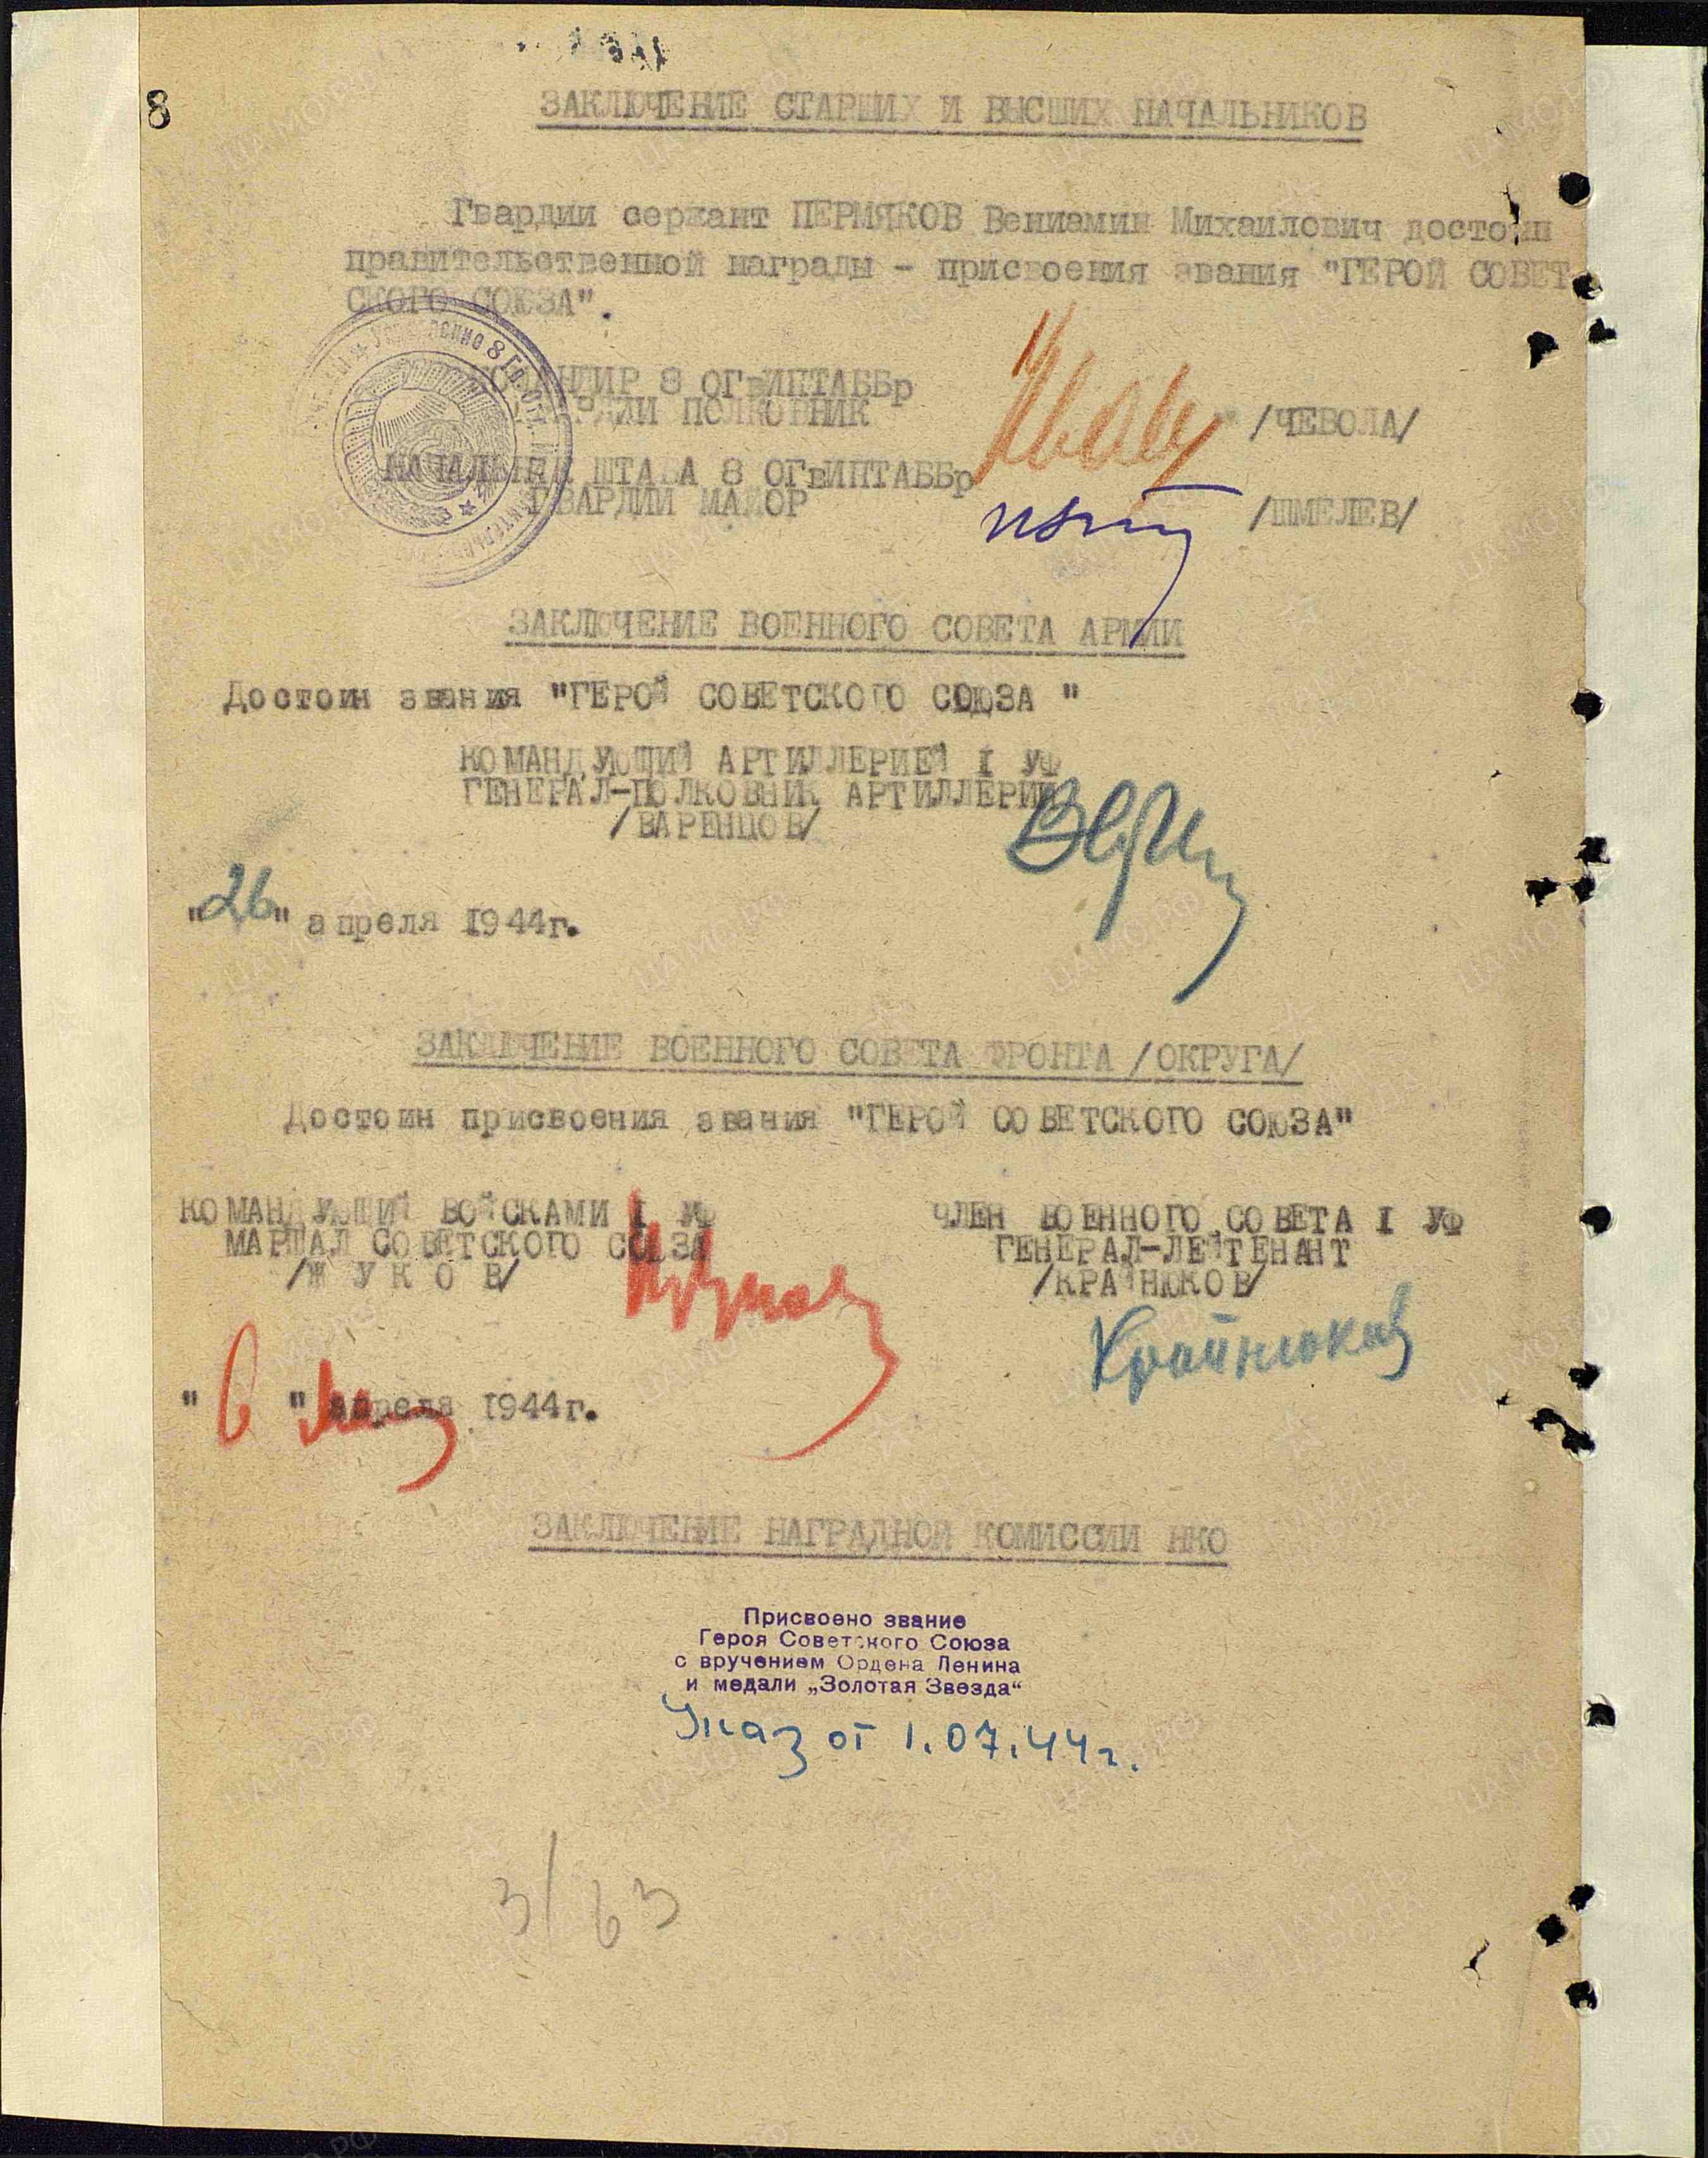 8
ЗАКЛЮЧЕНИЕ СТАРШИХ И ВЫСШИХ НАЧАЛЬНИКОВ
Гвардии сержант ПЕРМЯКОВ Вениамин Михаилович достоин
правительственной награды - присвоения звания "ГЕРОЙ СОВЕТ
СКОГО СОЮЗА".
КОМАНДИР 8 ОГвИПТАББр
ГВАРДИИ ПОЛКОВНИК /ЧЕВОЛА/
НАЧАЛЬНИК ШТАБА 8 ОГвИПТАББр
ГВАРДИИ МАЙОР /ШМЕЛЕВ/
ЗАКЛЮЧЕНИЕ ВОЕННОГО СОВЕТА АРМИИ
Достоин звания "ГЕРОЙ СОВЕТСКОГО СОЮЗА "
КОМАНДУЮЩИЙ АРТИЛЛЕРИЕЙ I УФ
ГЕНЕРАЛ-ПОЛКОВНИК АРТИЛЛЕРИИ
/ВАРЕНЦОВ/
"26" апреля 1944г.
ЗАКЛЮЧЕНИЕ ВОЕННОГО СОВЕТА ФРОНТА /ОКРУГА/
Достоин присвоения звания "ГЕРОЙ СОВЕТСКОГО СОЮЗА"
КОМАНДУЮЩИЙ ВОЙСКАМИ I УФ
МАРШАЛ СОВЕТСКОГО СОЮЗА
/Ж У К О В/
ЧЛЕН ВОЕННОГО СОВЕТА I УФ
ГЕНЕРАЛ-ЛЕЙТЕНАНТ
/КРАЙНЮКОВ/
Крайнюков
"6" апреля 1944г.
ЗАКЛЮЧЕНИЕ НАГРАДНОЙ КОМИССИИ НКО
Присвоено звание
Героя Советского Союза
с вручением Ордена Ленина
и медали „Золотая Звезда“
Указ от 1.07.44г.
3/63